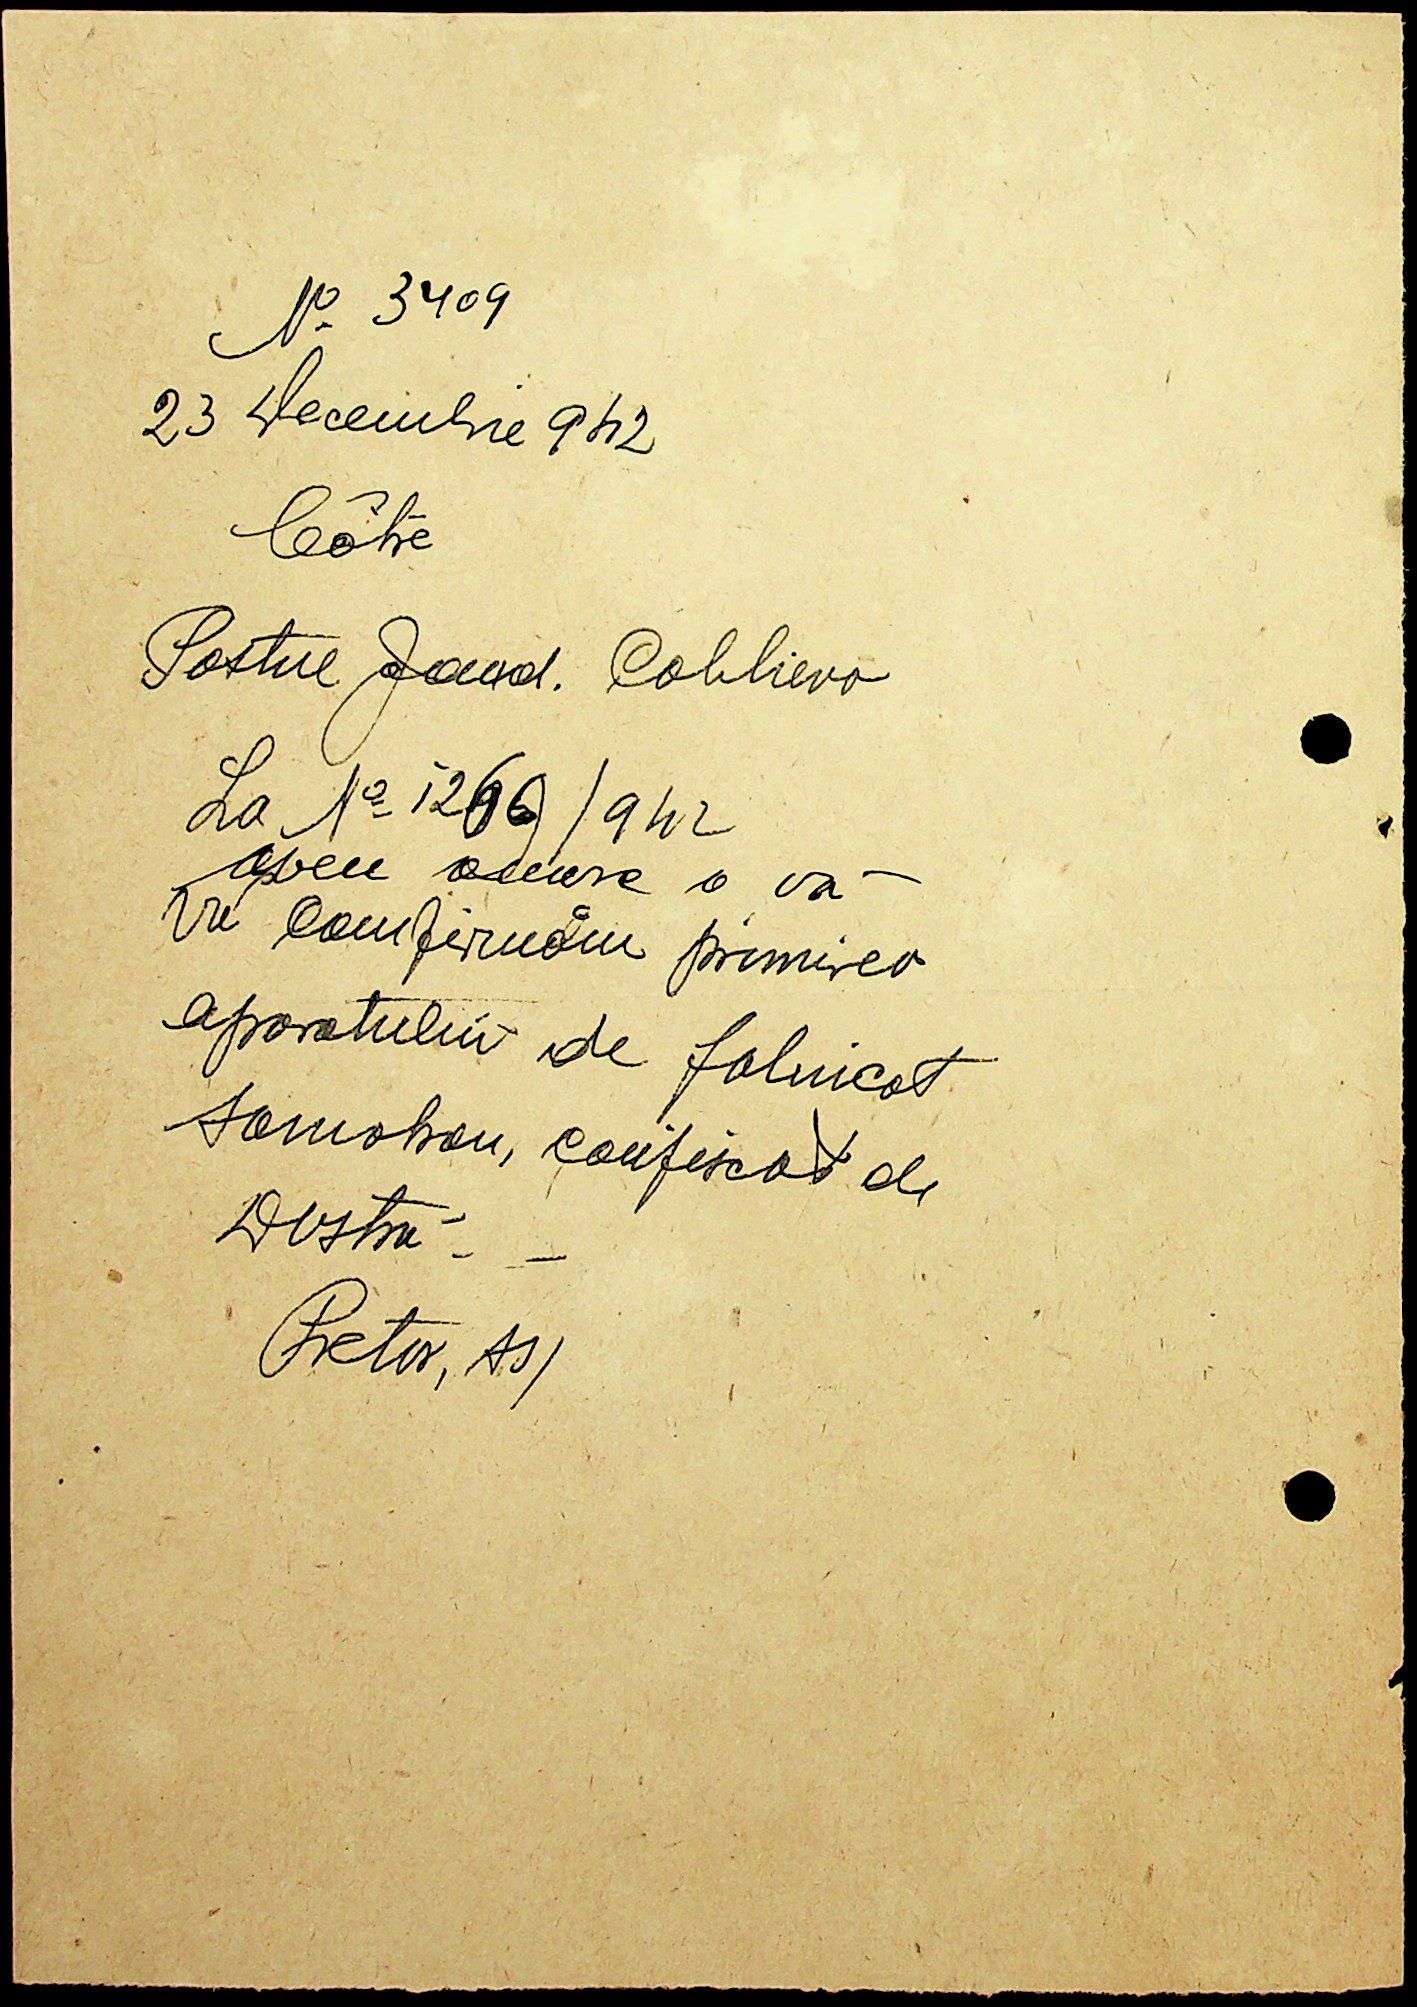 No. 3409
23 Decembrie 942
Către
Postul Jand. Coblievo
La No. 1266/942
avem onoare a vă
Vă confirmăm primirea
aparatului de fabricat
samohon, confiscat de
Dvstră. —
Pretor, ss/